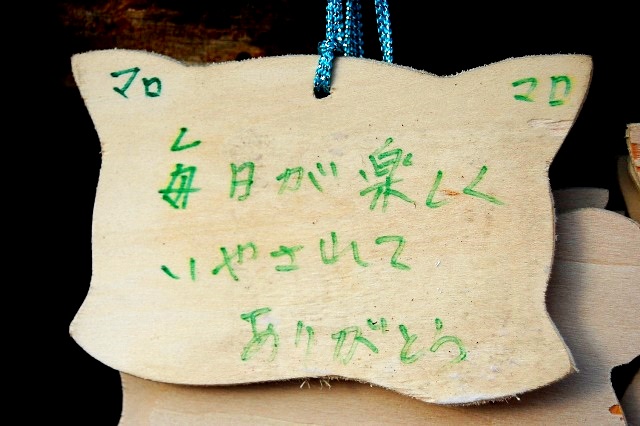 マロ マロ
毎日が楽しく
いやされて
ありがとう